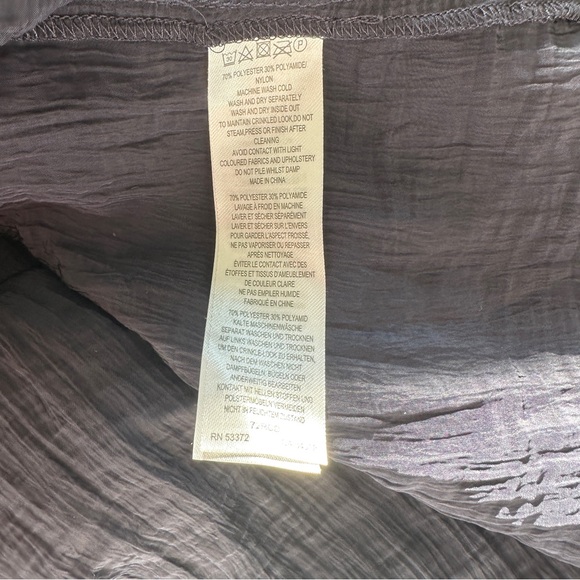 30
P
70% POLYESTER 30% POLYAMIDE/
NYLON
MACHINE WASH COLD
WASH AND DRY SEPARATELY
WASH AND DRY INSIDE OUT
TO MAINTAIN CRINKLED LOOK,DO NOT
STEAM,PRESS OR FINISH AFTER
CLEANING
AVOID CONTACT WITH LIGHT
COLOURED FABRICS AND UPHOLSTERY
DO NOT PILE WHILST DAMP
MADE IN CHINA
70% POLYESTER 30% POLYAMIDE
LAVAGE À FROID EN MACHINE
LAVER ET SÉCHER SÉPARÉMENT
LAVER ET SÉCHER SUR L'ENVERS
POUR GARDER L'ASPECT FROISSÉ,
NE PAS VAPORISER OU REPASSER
APRÈS NETTOYAGE
ÉVITER LE CONTACT AVEC DES
ÉTOFFES ET TISSUS D'AMEUBLEMENT
DE COULEUR CLAIRE
NE PAS EMPILER HUMIDE
FABRIQUÉ EN CHINE
70% POLYESTER 30% POLYAMID
KALTE MASCHINENWÄSCHE
SEPARAT WASCHEN UND TROCKNEN
AUF LINKS WASCHEN UND TROCKNEN
UM DEN CRINKLE-LOOK ZU ERHALTEN,
NACH DEM WASCHEN NICHT
DAMPFBÜGELN, BÜGELN ODER
ANDERWEITIG BEARBEITEN
KONTAKT MIT HELLEN STOFFEN UND
POLSTERMÖBELN VERMEIDEN
NICHT IN FEUCHTEM ZUSTAND
RN 53372